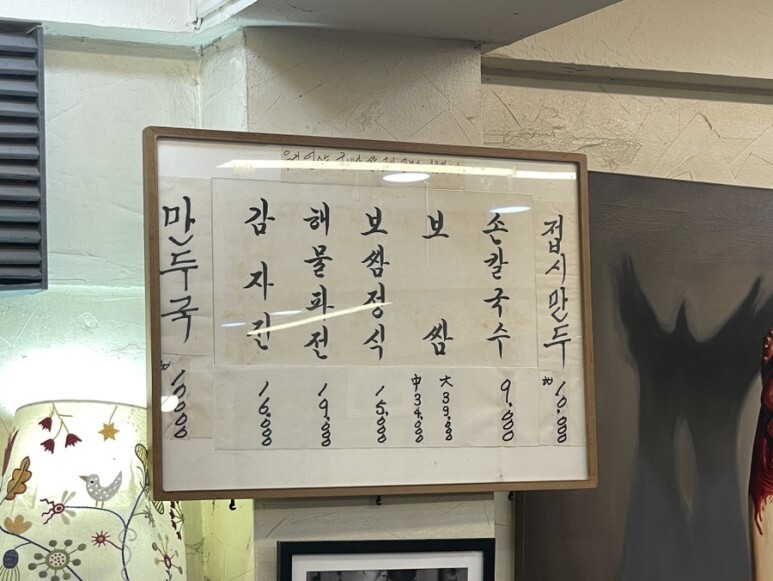 접시만두 ₩10.000
손칼국수 9.000
보쌈 大39.000 中34.000
보쌈정식 15.000
해물파전 19.000
감자전 16.000
만두국 ₩10.000